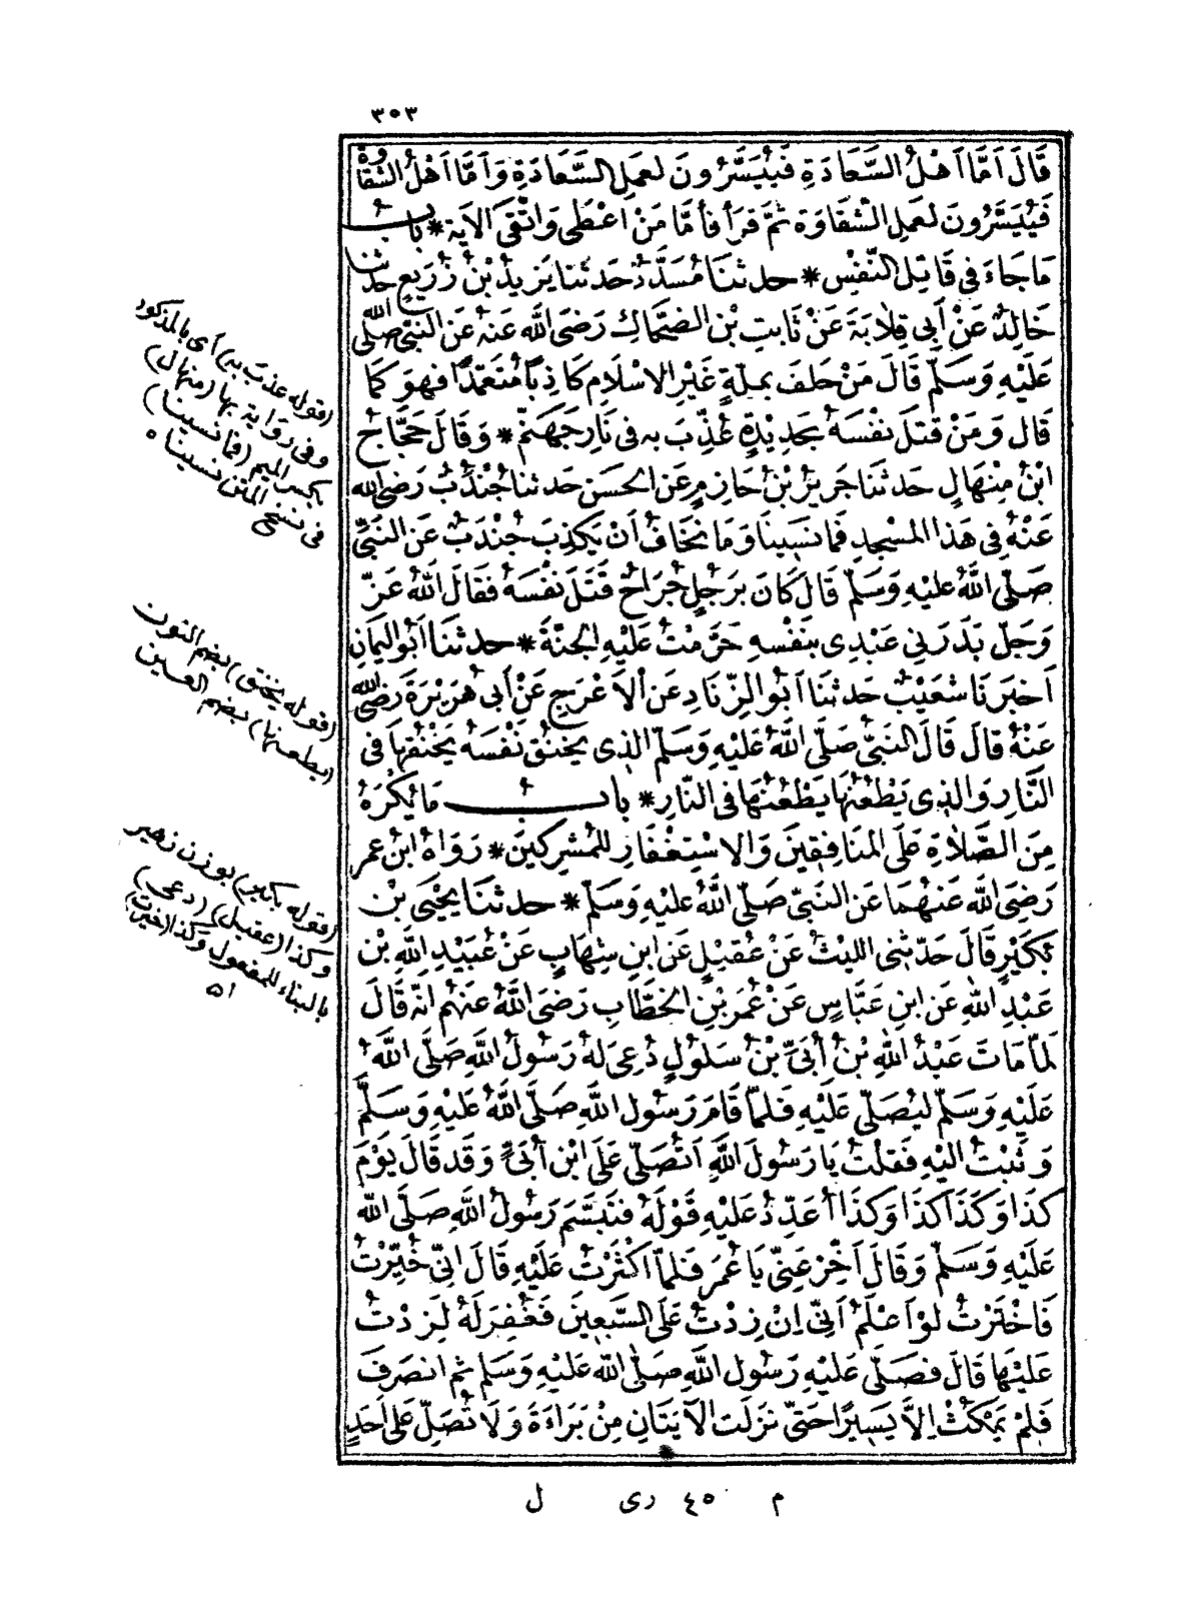 ٣٥٣
قَالَ اَمَّا اَهْلُ السَّعَادَةِ فَيُيَسَّرُونَ لعَمَلِ السَّعَادَةِ وَاَمَّا اَهْلُ الشَّقَاوَةِ
فَيُيَسَّرُونَ لعَمَلِ الشَّقَاوَة ثمَّ قَرَأَ فأمَّا مَنْ اَعْطَى وَاتَّقَى الآيَة * بابُ
مَا جَاءَ فى قَاتِل النَّفْسِ * حدثنَا مُسَدَّدٌ حَدثنا يَزيدُ بْنُ زُرَيعٍ حَدثنا
خَالِدٌ عَنْ أَبِى قِلَابَةَ عَنْ ثَابتِ بْن الضَّحَّاكِ رَضىَ اللَّه عَنهُ عَن النَّبىّ صلَّى الله
عَلَيْهِ وَسَلَّم قَالَ مَنْ حَلفَ بملةٍ غَيْرِ الاسْلَامِ كَاذِبًا مُتَعَمِّدًا فهوَ كَما
قَالَ وَمَنْ قَتلَ نفْسَهُ بحَدِيْدَةٍ عُذِّبَ به فى نَارِ جَهَنَّم * وَقَالَ حَجَّاجُ
ابْنُ مِنْهَالٍ حَدثنَا جَرِيرُ بْنُ حَازِمٍ عَن الحَسَن حَدثنا جُنْدُبٌ رَضىَ الله
عَنْهُ فِى هَذا المسْجِدِ فَمَا نَسِينَا وَمَا نخَافُ أَنْ يَكْذِبَ جُنْدَبٌ عَن النَّبىِّ
صَلَّى اللَّهُ عَليْهِ وَسَلَّم قَالَ كَانَ برَجُلٍ جُرَاحٌ قَتَلَ نفْسَهُ فقَالَ اللَّهُ عَزَّ
وَجَلَّ بَدَرَنِى عَبْدِى بنَفْسِهِ حَرَّمْتُ عَلَيْهِ الجَنَّةَ * حدثنَا اَبُو اليَمَانِ
اَخبَرَنَا شعَيْبٌ حَدثنَا اَبُو الزِّنَادِ عَن الاَعْرَجِ عَنْ أَبِى هُرَيْرَةَ رَضىَ الله
عَنْهُ قَالَ قَالَ النبىُّ صَلَّى اللَّهُ عَلَيْهِ وَسَلَّم الذِى يخنُقُ نَفْسَهُ يَخْنُقهَا فى
النَّارِ وَالذِى يَطْعُنهَا يَطْعُنُهَا فى النَّارِ * بابُ مَا يُكْرَهُ
مِنَ الصَّلَاةِ عَلَى المنَافِقِينَ وَالاسْتِغْفَارِ للمُشرِكِينَ * رَوَاهُ ابْنُ عمر
رَضِىَ اللَّه عَنْهُمَا عَن النَّبىّ صَلَّى اللَّهُ عَليْهِ وَسَلَّمَ * حدثنَا يحْيَى بْن
بُكَيْرٍ قَالَ حَدّثنى الليْثُ عَنْ عُقَيْلٍ عَن ابنِ شِهَابٍ عَنْ عُبَيْدِ اللَّهِ بْن
عَبْدِ اللَّهِ عَن ابنِ عَبَّاسٍ عَنْ عُمَرَ بْنِ الخَطَّابِ رَضىَ اللَّهُ عَنهُم انّه قَالَ
لمَّا مَاتَ عَبْدُ اللَّهِ بْنُ أُبَىِّ بْنُ سَلُولٍ دُعِىَ لَهُ رَسُولُ اللَّهِ صَلَّى اللَّهُ
عَلَيْهِ وَسَلَّم ليُصَلّى عَلَيْهِ فلمَّا قَامَ رَسُول اللَّهِ صَلَّى اللَّهُ عَلَيْهِ وَسَلَّم
وَثبْتُ اليْهِ فَقلْتُ يَا رَسُولَ اللَّهِ اَتُصَلّى عَلَى ابْنِ اُبَىٍّ وَقَد قَالَ يَوْمَ
كَذَا وَكَذَا كَذَا وَكَذَا أُعَدِّدُ عَلَيْهِ قَوْلَهُ فتَبَسَّم رَسُولُ اللَّهِ صَلَّى اللَّه
عَلَيْهِ وَسَلَّم وَقَالَ اَخِّرْ عَنِّى يَا عُمَر فَلمَّا اَكْثَرْتُ عَلَيْهِ قَالَ اِنِّى خُيِّرْتُ
فَاخْتَرْتُ لَوْ اَعْلَمُ اَنّى اِنْ زِدْتُ عَلَى السَّبعِينَ فَغُفِرَ لَهُ لَزِدْتُ
عَليْهَا قَالَ فصَلَّى عَلَيْهِ رَسُول اللَّهِ صَلَّى اللَّه عَلَيْهِ وَسَلَّم ثم انصَرَفَ
فَلمْ يَمْكُثْ اِلاَّ يَسِيرًا حَتىَّ نَزلَت الآيَتَانِ مِنْ بَرَاءَةَ وَلَا تُصَلّ عَلَى اَحَدٍ
(قوله عذب به) أى بالمذكور
وفى رواية بها (منهال)
بكسر الميم (فما نسينا)
فى نسخ المتن نسيناه
(قوله يخنق) بضم النون
(يطعنها) بضم العين
(قوله بكير) بوزن زهير
وكذا (عقيل) (دعى)
بالبناء للمفعول وكذا (خيرت)
اه
م ٤٥ رى ل